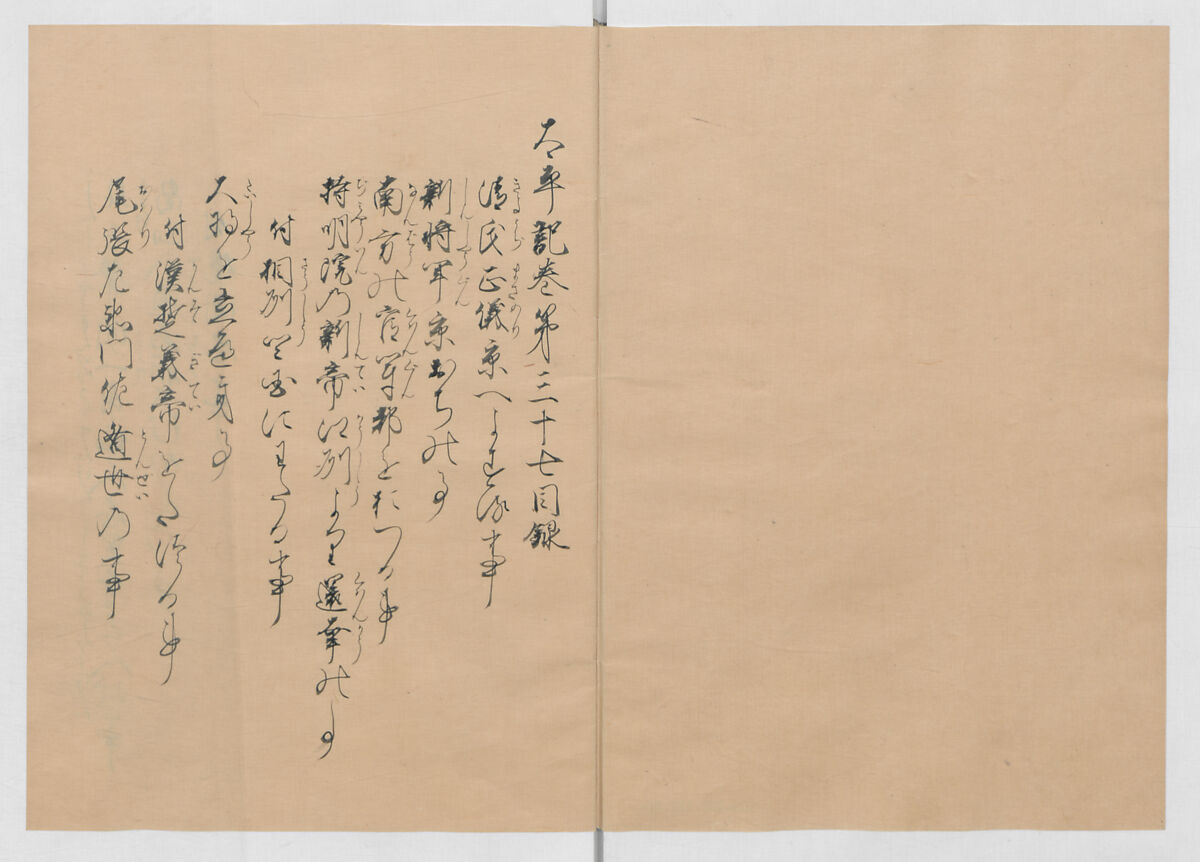 太平記巻第三十七目録
清氏正儀京へよする事
新将軍京おちの事
南方の官軍都を打つる事
持明院の新帝江州より還幸の事
付相州七国にわたる事
大将を立へき事
付漢楚義帝をたつる事
尾張左衛門佐遁世の事